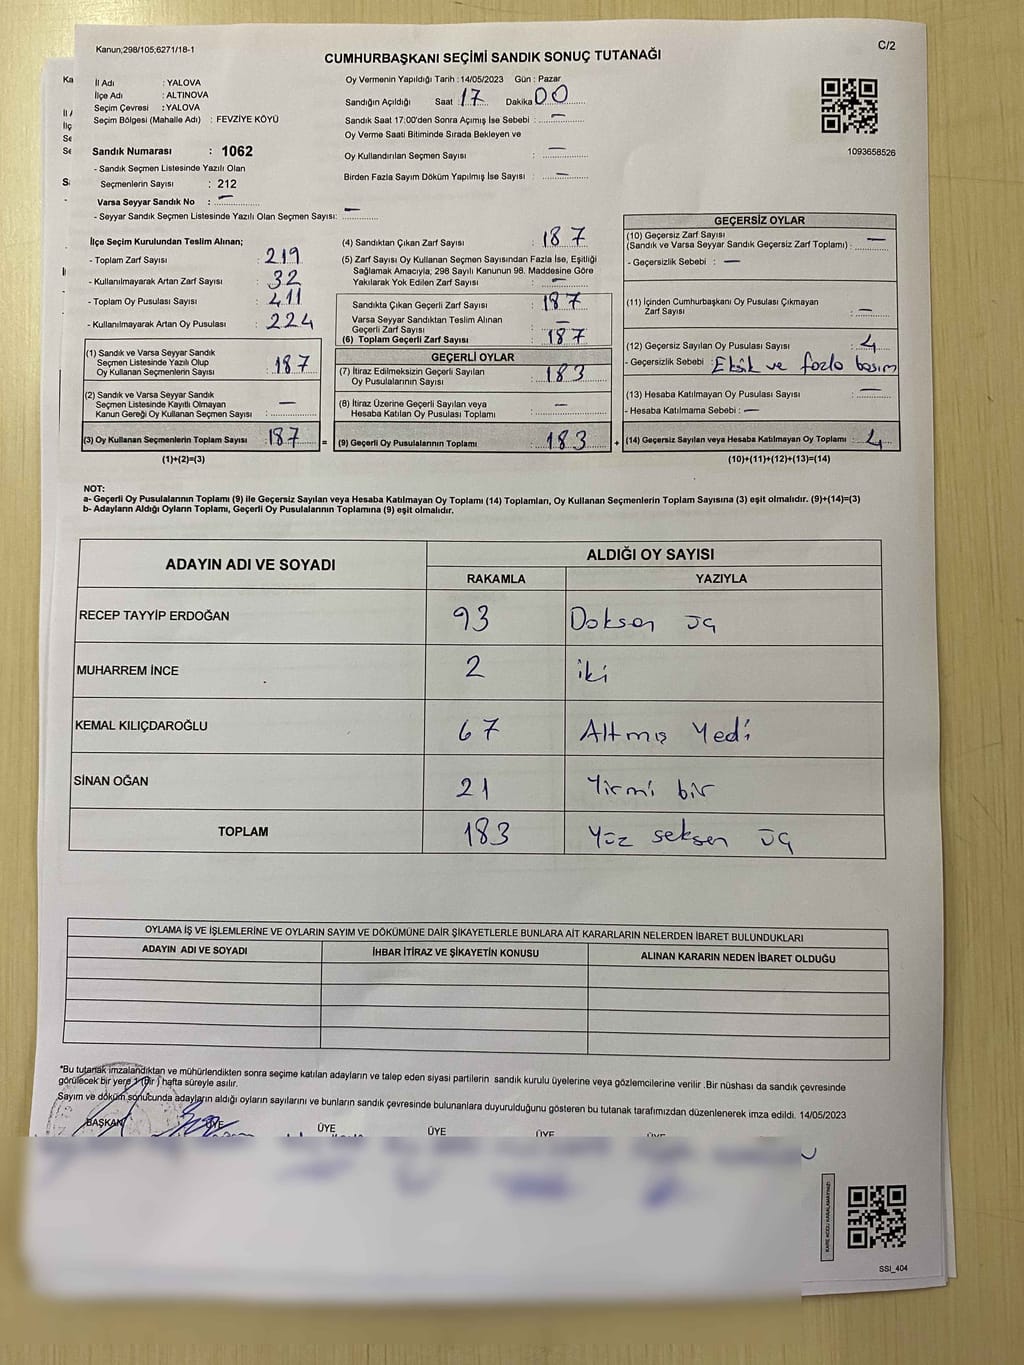 Kanun;298/105;6271/18-1
C/2
CUMHURBAŞKANI SEÇİMİ SANDIK SONUÇ TUTANAĞI
İl Adı : YALOVA
İlçe Adı : ALTINOVA
Seçim Çevresi : YALOVA
Seçim Bölgesi (Mahalle Adı) : FEVZİYE KÖYÜ
Sandık Numarası : 1062
- Sandık Seçmen Listesinde Yazılı Olan
Seçmenlerin Sayısı : 212
Varsa Seyyar Sandık No : —
- Seyyar Sandık Seçmen Listesinde Yazılı Olan Seçmen Sayısı: —
Oy Vermenin Yapıldığı Tarih : 14/05/2023 Gün : Pazar
Sandığın Açıldığı Saat 17 Dakika 00
Sandık Saat 17:00'den Sonra Açımış İse Sebebi : —
Oy Verme Saati Bitiminde Sırada Bekleyen ve
Oy Kullandırılan Seçmen Sayısı : —
Birden Fazla Sayım Döküm Yapılmış İse Sayısı : —
1093658526
İlçe Seçim Kurulundan Teslim Alınan;
- Toplam Zarf Sayısı : 219
- Kullanılmayarak Artan Zarf Sayısı : 32
- Toplam Oy Pusulası Sayısı : 411
- Kullanılmayarak Artan Oy Pusulası : 224
(1) Sandık ve Varsa Seyyar Sandık
Seçmen Listesinde Yazılı Olup
Oy Kullanan Seçmenlerin Sayısı : 187
(2) Sandık ve Varsa Seyyar Sandık
Seçmen Listesinde Kayıtlı Olmayan
Kanun Gereği Oy Kullanan Seçmen Sayısı : —
(3) Oy Kullanan Seçmenlerin Toplam Sayısı : 187 =
(1)+(2)=(3)
(4) Sandıktan Çıkan Zarf Sayısı : 187
(5) Zarf Sayısı Oy Kullanan Seçmen Sayısından Fazla İse, Eşitliği
Sağlamak Amacıyla, 298 Sayılı Kanunun 98. Maddesine Göre
Yakılarak Yok Edilen Zarf Sayısı : —
Sandıkta Çıkan Geçerli Zarf Sayısı : 187
Varsa Seyyar Sandıktan Teslim Alınan
Geçerli Zarf Sayısı : —
(6) Toplam Geçerli Zarf Sayısı : 187
GEÇERLİ OYLAR
(7) İtiraz Edilmeksizin Geçerli Sayılan
Oy Pusulalarının Sayısı : 183
(8) İtiraz Üzerine Geçerli Sayılan veya
Hesaba Katılan Oy Pusulası Toplamı : —
(9) Geçerli Oy Pusulalarının Toplamı : 183 +
GEÇERSİZ OYLAR
(10) Geçersiz Zarf Sayısı
(Sandık ve Varsa Seyyar Sandık Geçersiz Zarf Toplamı) : —
- Geçersizlik Sebebi : —
(11) İçinden Cumhurbaşkanı Oy Pusulası Çıkmayan
Zarf Sayısı : —
(12) Geçersiz Sayılan Oy Pusulası Sayısı : 4
- Geçersizlik Sebebi : Eksik ve fazla basım
(13) Hesaba Katılmayan Oy Pusulası Sayısı : —
- Hesaba Katılmama Sebebi : —
(14) Geçersiz Sayılan veya Hesaba Katılmayan Oy Toplamı : 4
(10)+(11)+(12)+(13)=(14)
NOT:
a- Geçerli Oy Pusulalarının Toplamı (9) ile Geçersiz Sayılan veya Hesaba Katılmayan Oy Toplamı (14) Toplamları, Oy Kullanan Seçmenlerin Toplam Sayısına (3) eşit olmalıdır. (9)+(14)=(3)
b- Adayların Aldığı Oyların Toplamı, Geçerli Oy Pusulalarının Toplamına (9) eşit olmalıdır.
ADAYIN ADI VE SOYADI ALDIĞI OY SAYISI
RAKAMLA YAZIYLA
RECEP TAYYİP ERDOĞAN 93 Doksan üç
MUHARREM İNCE 2 iki
KEMAL KILIÇDAROĞLU 67 Altmış Yedi
SİNAN OĞAN 21 Yirmi bir
TOPLAM 183 Yüz seksen üç
OYLAMA İŞ VE İŞLEMLERİNE VE OYLARIN SAYIM VE DÖKÜMÜNE DAİR ŞİKAYETLERLE BUNLARA AİT KARARLARIN NELERDEN İBARET BULUNDUKLARI
ADAYIN ADI VE SOYADI İHBAR İTİRAZ VE ŞİKAYETİN KONUSU ALINAN KARARIN NEDEN İBARET OLDUĞU
*Bu tutanak imzalandıktan ve mühürlendikten sonra seçime katılan adayların ve talep eden siyasi partilerin sandık kurulu üyelerine veya gözlemcilerine verilir .Bir nüshası da sandık çevresinde
görülecek bir yere 1 (bir ) hafta süreyle asılır.
Sayım ve döküm sonucunda adayların aldığı oyların sayılarını ve bunların sandık çevresinde bulunanlara duyurulduğunu gösteren bu tutanak tarafımızdan düzenlenerek imza edildi. 14/05/2023
BAŞKAN ÜYE ÜYE ÜYE ÜYE ÜYE
SSI_404